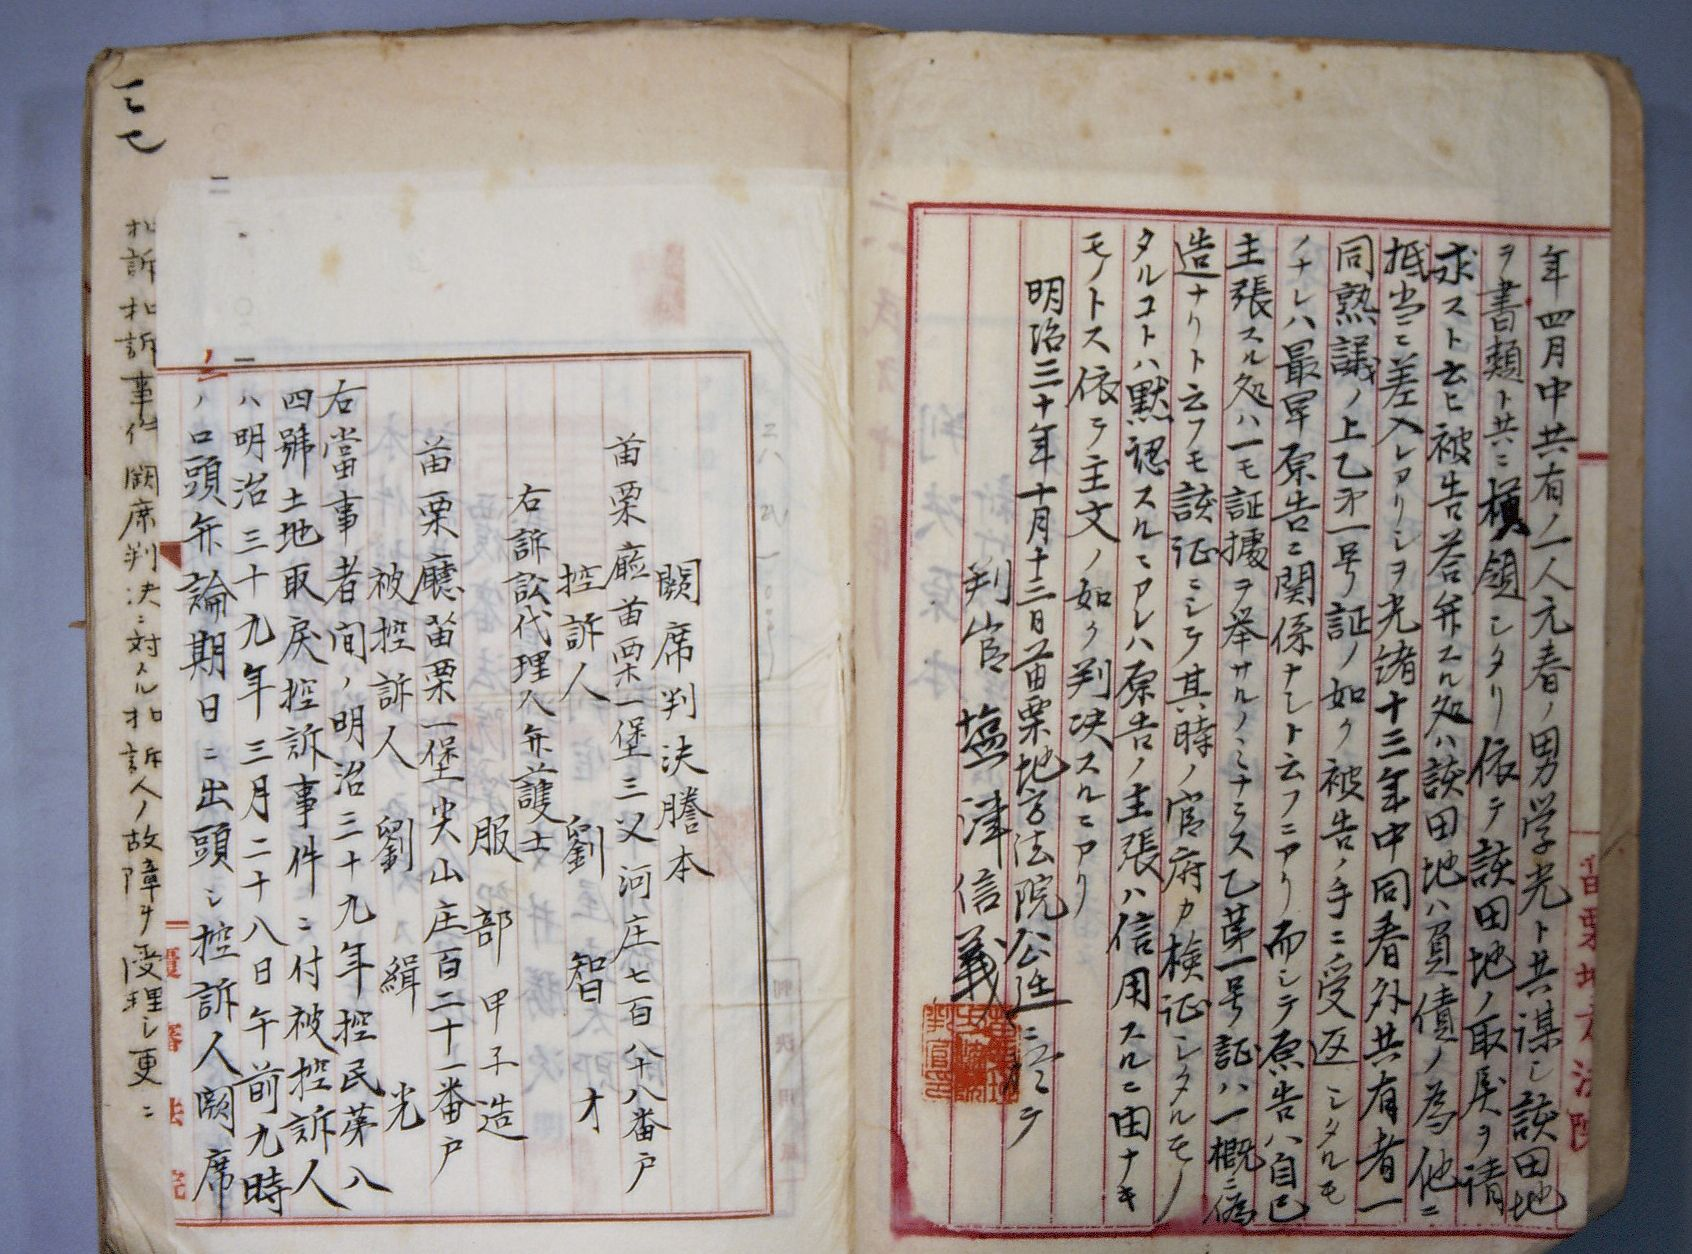 年四月中共有ノ一人元春ノ男学光ト共謀シ該田地
ヲ書類ト共ニ横領シタリ依テ該田地ノ取戻ヲ請
求スト云ヒ被告答弁スル処ハ該田地ハ負債ノ為他ニ
抵当ニ差入レアリシヲ光緒十三年中同春外共有者一
同熟議ノ上乙第一号証ノ如ク被告ノ手ニ受返シタルモ
ノナレハ最早原告ニ関係ナシト云フニアリ而シテ原告ハ自己
主張スル処ハ一モ証拠ヲ挙サルノミナラス乙第一号証ハ一概ニ偽
造ナリト云フモ該証ニシテ其時ノ官府カ検証シタルモノ
タルコトハ黙認スルニアレハ原告ノ主張ハ信用スルニ由ナキ
モノトス依テ主文ノ如ク判決スルニアリ
明治三十年十月十三日苗栗地方法院公廷ニ於テ
判官 塩津信義
苗栗地方法院
闕席判決謄本
苗栗廳苗栗一堡三叉河庄七百八十八番戸
控訴人 劉智才
右訴訟代理人弁護士
服部甲子造
苗栗廳苗栗一堡尖山庄百二十一番戸
被控訴人 劉緝光
右當事者間ノ明治三十九年控民第八
四號土地取戻控訴事件ニ付被控訴人
ハ明治三十九年三月二十八日午前九時
ノ口頭弁論期日ニ出頭シ控訴人闕席
覆審法院
控訴事件闕席判決ニ対スル控訴人ノ故障ヲ受理シ更ニ